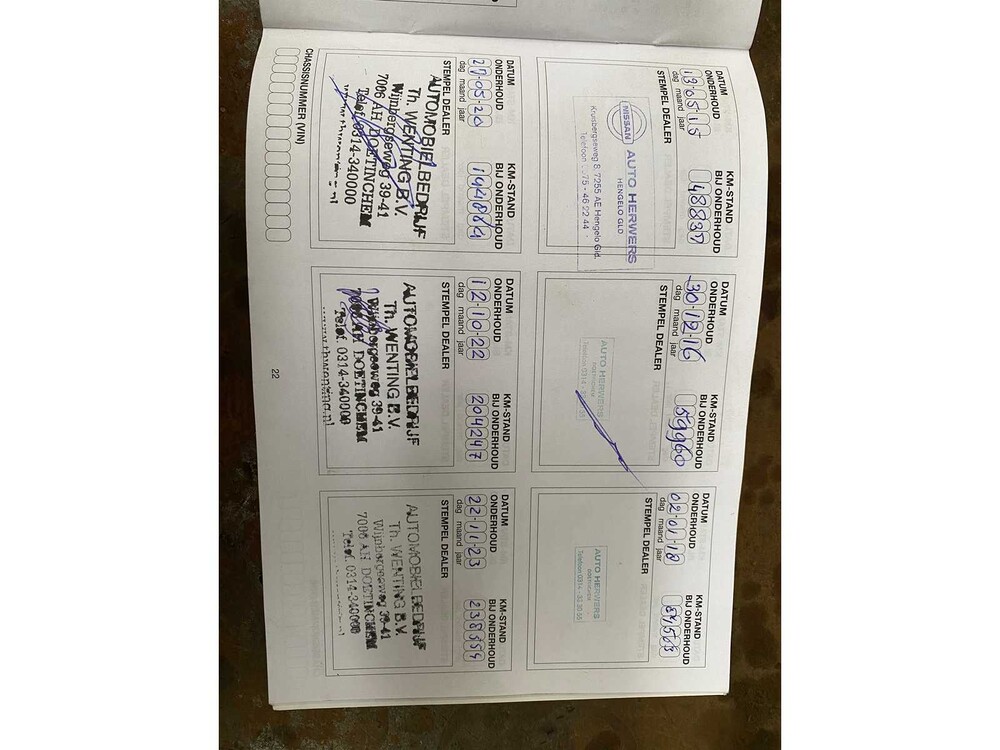 DATUM ONDERHOUD
13-05-15
dag maand jaar
KM-STAND BIJ ONDERHOUD
48837
STEMPEL DEALER
NISSAN
AUTO HERWERS
HENGELO GLD
Kruisbergseweg 8, 7255 AE Hengelo Gld.
DATUM ONDERHOUD
30-12-16
dag maand jaar
KM-STAND BIJ ONDERHOUD
59960
STEMPEL DEALER
AUTO HERWERS
DATUM ONDERHOUD
02-01-18
dag maand jaar
KM-STAND BIJ ONDERHOUD
STEMPEL DEALER
AUTO HERWERS
DATUM ONDERHOUD
27-05-20
dag maand jaar
KM-STAND BIJ ONDERHOUD
STEMPEL DEALER
AUTOMOBIELBEDRIJF
Th. WENTING B.V.
Wijnbergseweg 39-41
7006 AH DOETINCHEM
Telef. 0314-340000
www.thwenting.nl
DATUM ONDERHOUD
12-10-22
dag maand jaar
KM-STAND BIJ ONDERHOUD
204247
STEMPEL DEALER
AUTOMOBIELBEDRIJF
Th. WENTING B.V.
Wijnbergseweg 39-41
7006 AH DOETINCHEM
Telef. 0314-340000
www.thwenting.nl
DATUM ONDERHOUD
22-11-23
dag maand jaar
KM-STAND BIJ ONDERHOUD
238554
STEMPEL DEALER
AUTOMOBIELBEDRIJF
Th. WENTING B.V.
Wijnbergseweg 39-41
7006 AH DOETINCHEM
Telef. 0314-340000
CHASSISNUMMER (VIN)
22